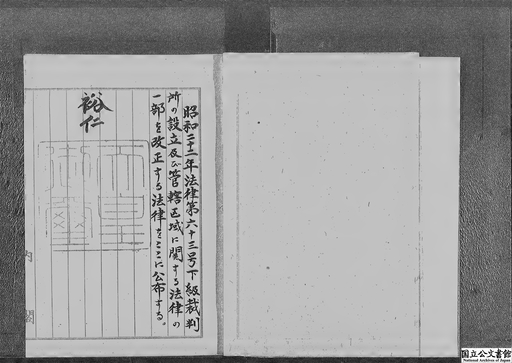 昭和二十二年法律第六十三号下級裁判
所の設立及び管轄区域に関する法律の
一部を改正する法律をここに公布する。
裕仁
天皇
御璽
内閣
国立公文書館
National Archives of Japan